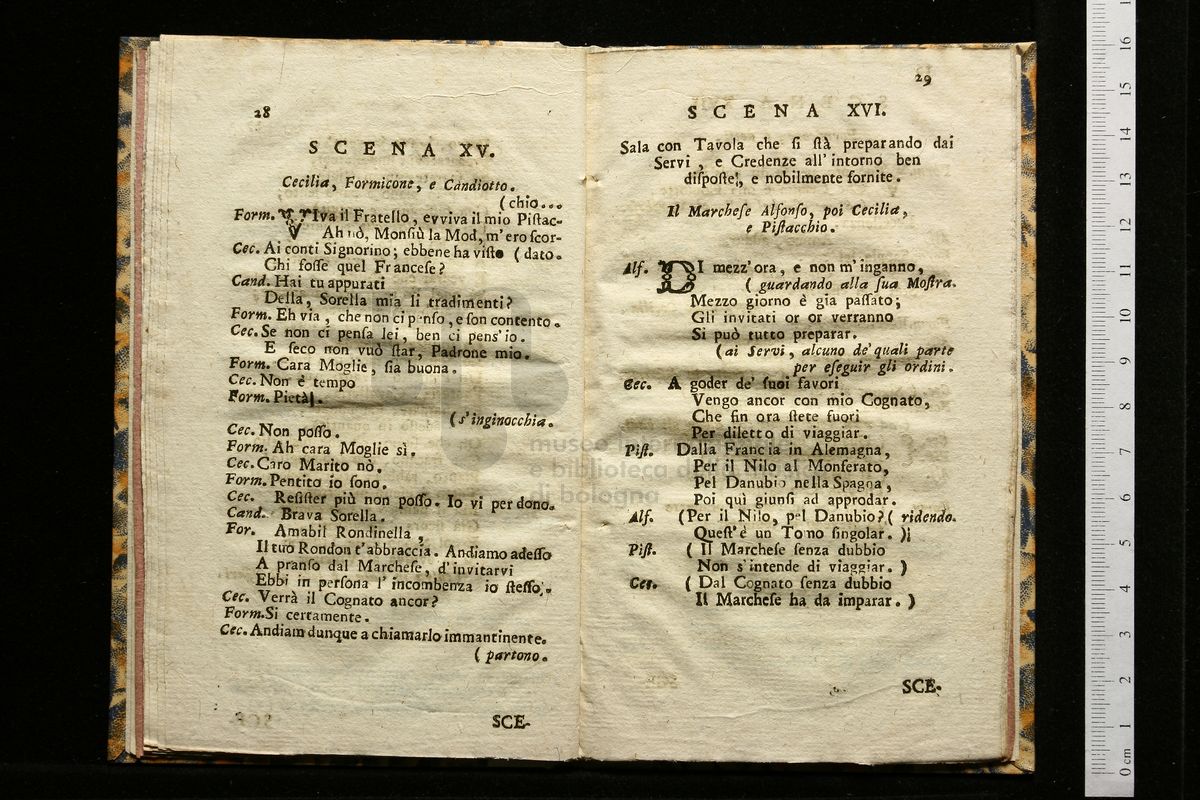 28
SCENA XV.
Cecilia, Formicone, e Candiotto.
(chio...
Form. VIva il Fratello, evviva il mio Pistac-
Ah nò, Monsiù la Mod, m'ero scor-
Cec. Ai conti Signorino; ebbene ha visto (dato.
Chi fosse quel Francese?
Cand. Hai tu appurati
Della, Sorella mia li tradimenti?
Form. Eh via, che non ci penso, e son contento.
Cec. Se non ci pensa lei, ben ci pens'io.
E seco non vuò star, Padrone mio.
Form. Cara Moglie, sia buona.
Cec. Non è tempo
Form. Pietà.
(s'inginocchia.
Cec. Non posso.
Form. Ah cara Moglie si.
Cec. Caro Marito nò.
Form. Pentito io sono.
Cec. Resister più non posso. Io vi perdono.
Cand. Brava Sorella.
For. Amabil Rondinella,
Il tuo Rondon t'abbraccia. Andiamo adesso
A pranso dal Marchese, d'invitarvi
Ebbi in persona l'incombenza io stesso.
Cec. Verrà il Cognato ancor?
Form. Si certamente.
Cec. Andiam dunque a chiamarlo immantinente.
(partono.
SCE-
29
SCENA XVI.
Sala con Tavola che si stà preparando dai
Servi, e Credenze all'intorno ben
disposte, e nobilmente fornite.
Il Marchese Alfonso, poi Cecilia,
e Pistacchio.
Alf. DI mezz'ora, e non m'inganno,
(guardando alla sua Mostra.
Mezzo giorno è gia passato;
Gli invitati or or verranno
Si può tutto preparar.
(ai Servi, alcuno de' quali parte
per eseguir gli ordini.
Cec. A goder de' suoi favori
Vengo ancor con mio Cognato,
Che fin ora stete fuori
Per diletto di viaggiar.
Pist. Dalla Francia in Alemagna,
Per il Nilo al Monferato,
Pel Danubio nella Spagna,
Poi quì giunsi ad approdar.
Alf. (Per il Nilo, pel Danubio? (ridendo.
Quest'è un Tomo singolar.)
Pist. (Il Marchese senza dubbio
Non s'intende di viaggiar.)
Cec. (Dal Cognato senza dubbio
Il Marchese ha da imparar.)
SCE-
museo
e biblioteca
di bologna
0 cm 1 2 3 4 5 6 7 8 9 10 11 12 13 14 15 16